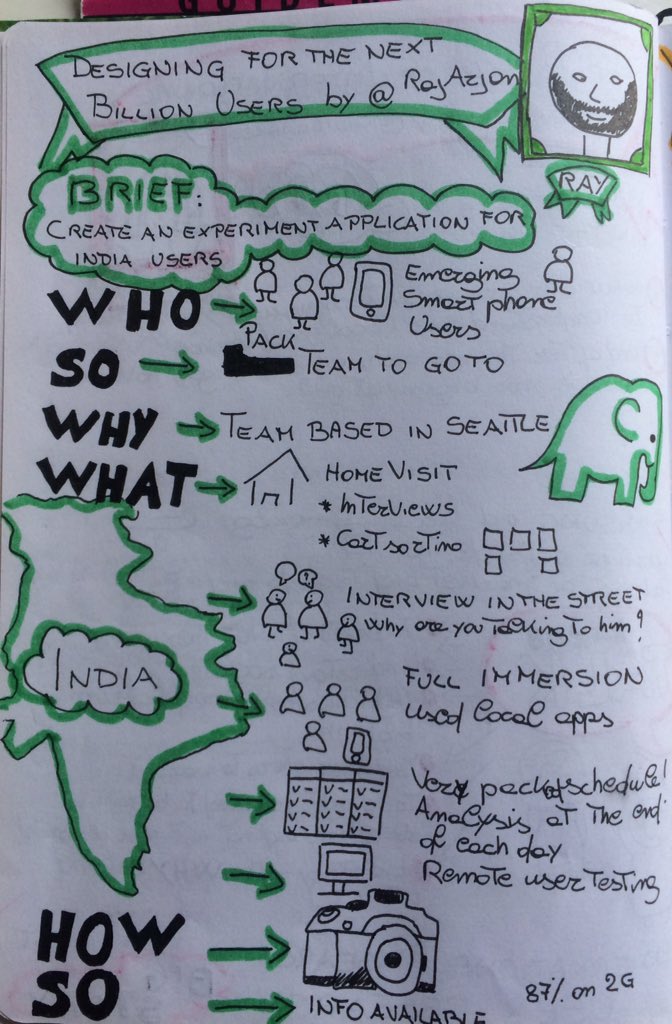 DESIGNING FOR THE NEXT
BILLION USERS by @ RajArjan
RAY
BRIEF:
CREATE AN EXPERIMENT APPLICATION FOR
INDIA USERS
WHO
Emerging
Smart phone
Users
SO
PACK
TEAM TO GO TO
WHY
TEAM BASED IN SEATTLE
WHAT
HOME VISIT
* Interviews
* Cart sortino
INTERVIEW IN THE STREET
Why are you talking to him?
INDIA
FULL IMMERSION
used local apps
Very packed schedule!
Analysis at the end
of each day
Remote user testing
HOW
SO
INFO AVAILABLE
87% on 2G